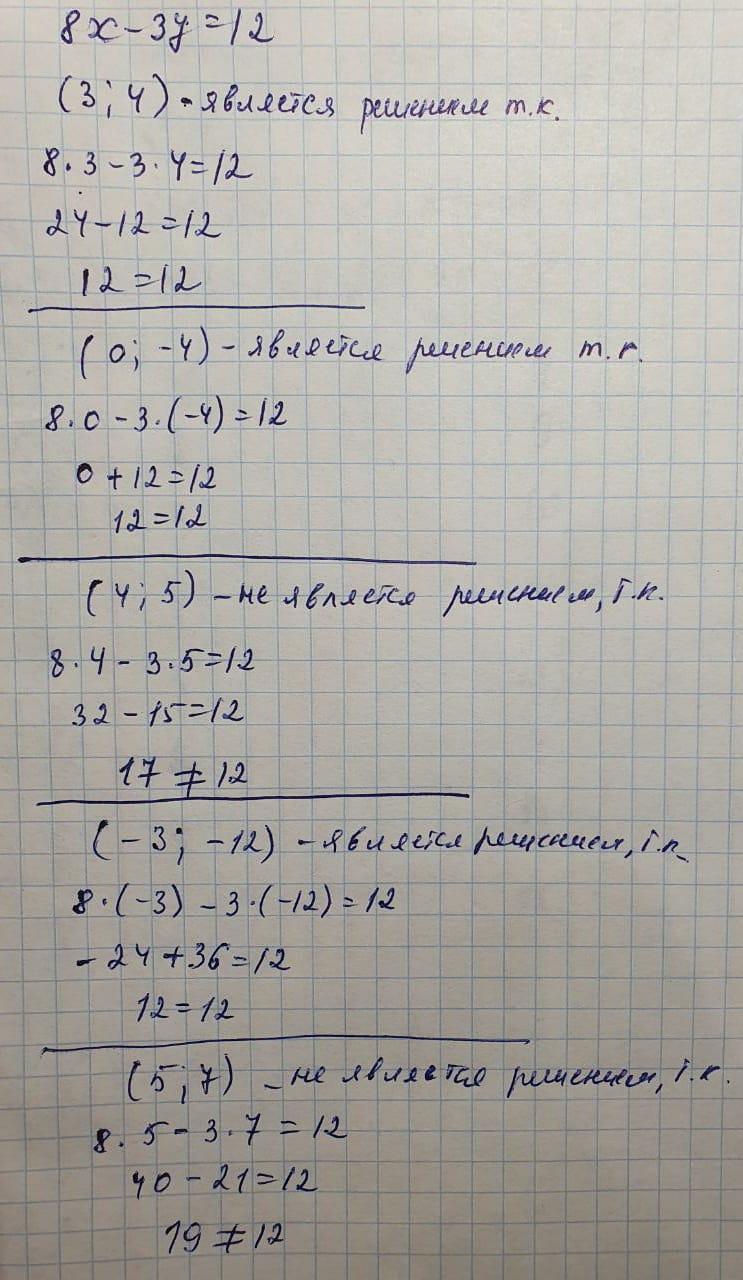 8x - 3y = 12
(3; 4) - является решением т.к.
8·3 - 3·4 = 12
24 - 12 = 12
12 = 12
(0; -4) - является решением т.к.
8·0 - 3·(-4) = 12
0 + 12 = 12
12 = 12
(4; 5) - не является решением, т.к.
8·4 - 3·5 = 12
32 - 15 = 12
17 ≠ 12
(-3; -12) - является решением, т.к.
8·(-3) - 3·(-12) = 12
-24 + 36 = 12
12 = 12
(5; 7) - не является решением, т.к.
8·5 - 3·7 = 12
40 - 21 = 12
19 ≠ 12